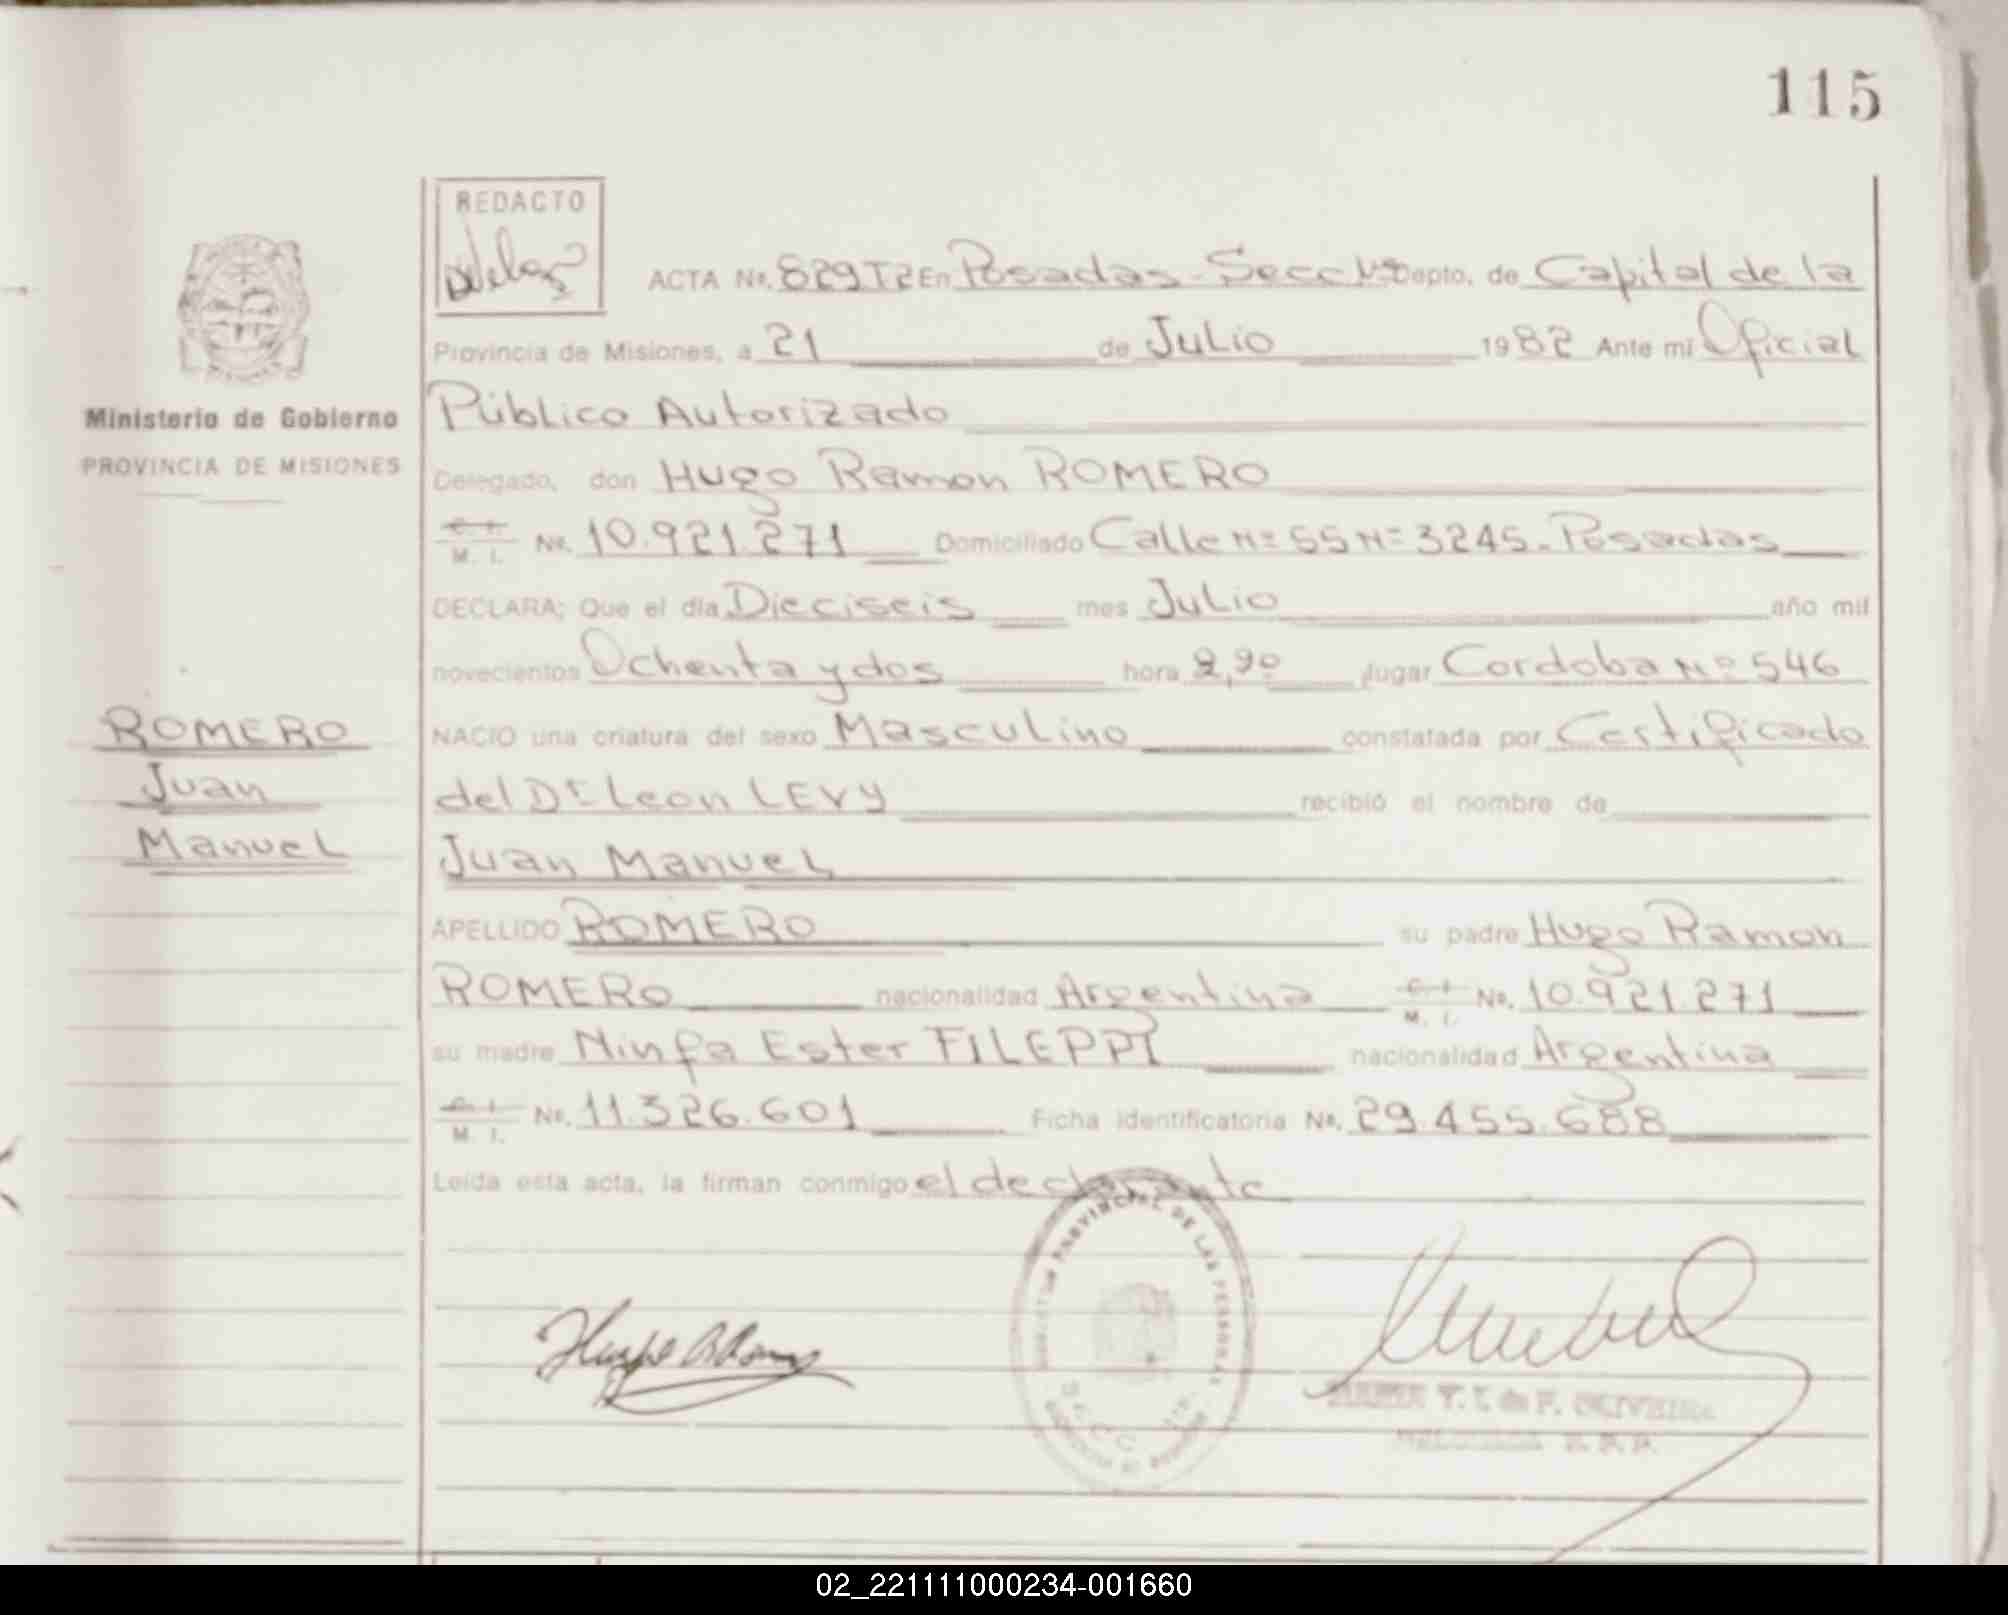 115
REDACTO
ACTA No. 829T2 En Posadas - Secc 1ª Depto. de Capital de la
Provincia de Misiones, a 21 de Julio 1982 Ante mi Oficial
Ministerio de Gobierno
Público Autorizado
PROVINCIA DE MISIONES
Delegado, don Hugo Ramon ROMERO
C. I. M. I. No. 10.921.271 Domiciliado Calle Nº 55 Nº 3245 - Posadas
DECLARA; Que el día Dieciseis mes Julio año mil
novecientos Ochenta y dos hora lugar Cordoba Nº 546
ROMERO
NACIO una criatura del sexo Masculino constatada por Certificado
Juan
del Dr Leon LEVY recibió el nombre de
Manuel
Juan Manuel
APELLIDO ROMERO su padre Hugo Ramon
ROMERO nacionalidad Argentina C. I. M. I. No. 10.921.271
su madre Ninfa Ester FILEPPI nacionalidad Argentina
C. I. M. I. No. 11.326.601 Ficha identificatoria No. 29.455.688
Leída esta acta, la firman conmigo el declarante
PROVINCIAL DE LAS PERSONAS
SECC
T. I. de F. OLIVEIRA
02_221111000234-001660